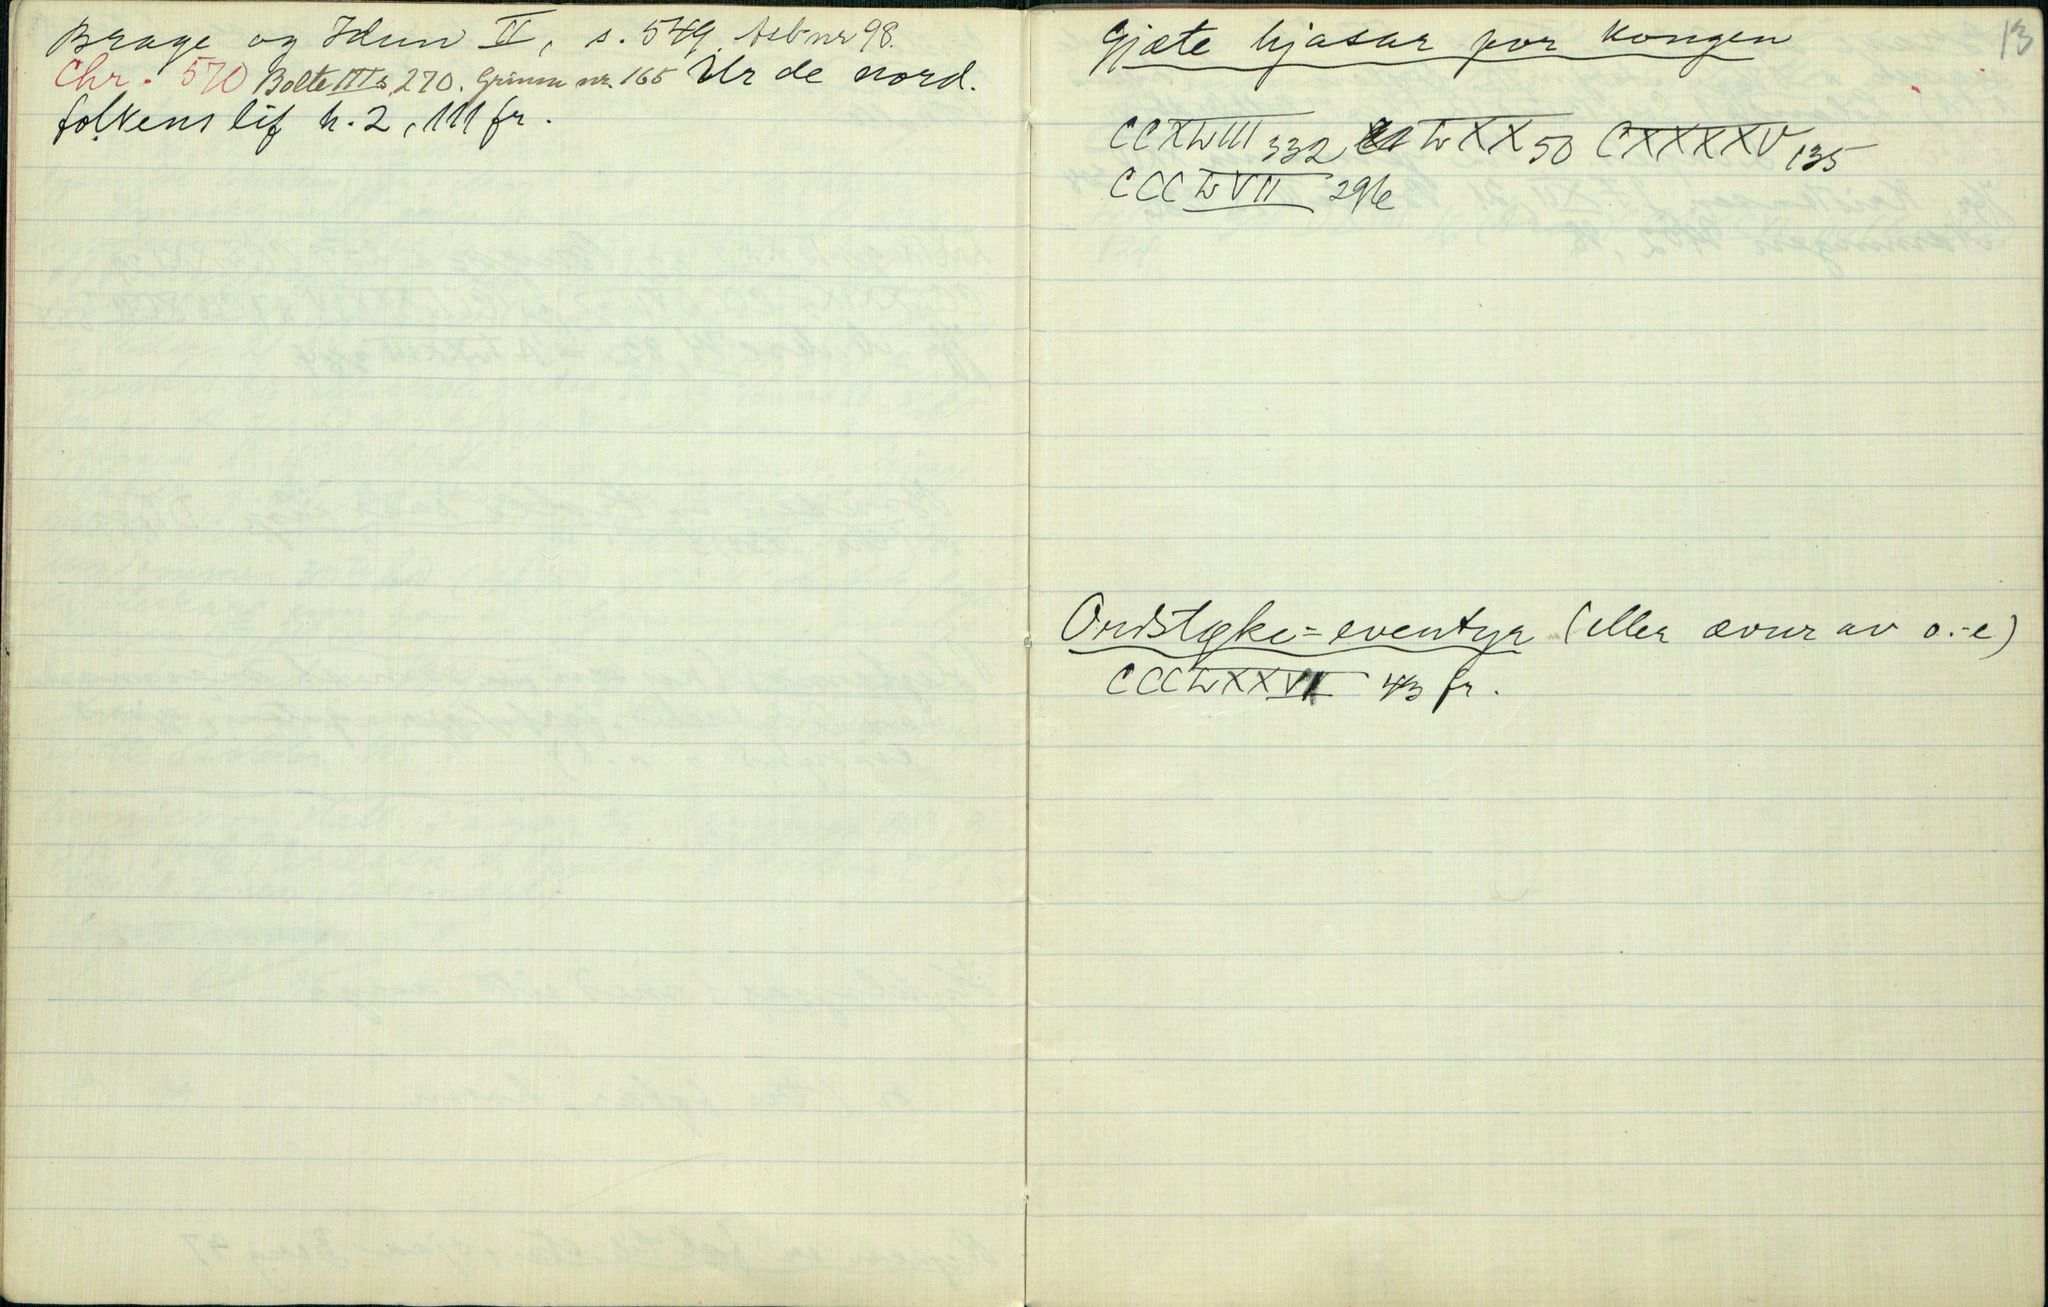 Brage og Idun II, s. 549. Asb nr 98.
Chr. 570 Bolte III s. 270. Grimm nr. 165 Ur de nord.
folkens lif h. 2, 111 fr.
13
Gjæte hjasar por kongen
CCXLVIII 332 LXX 50 CXXXXV 135
CCCLVII 296
Ordstøke-eventyr (eller ævur av o.-e)
CCCLXXVI 43 fr.